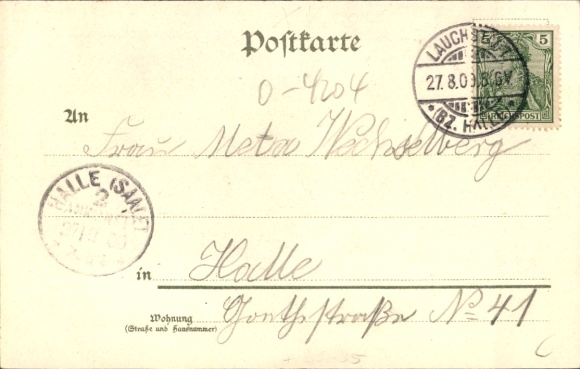 Postkarte
5
REICHSPOST
LAUCHSTEDT
27.8.0 .8-9V.
* (BZ. HALLE) *
O-4204
An
Frau Meta Wechselberg
HALLE (SAALE)
2
in Halle
Wohnung
(Straße und Hausnummer)
Goethestraße No 41